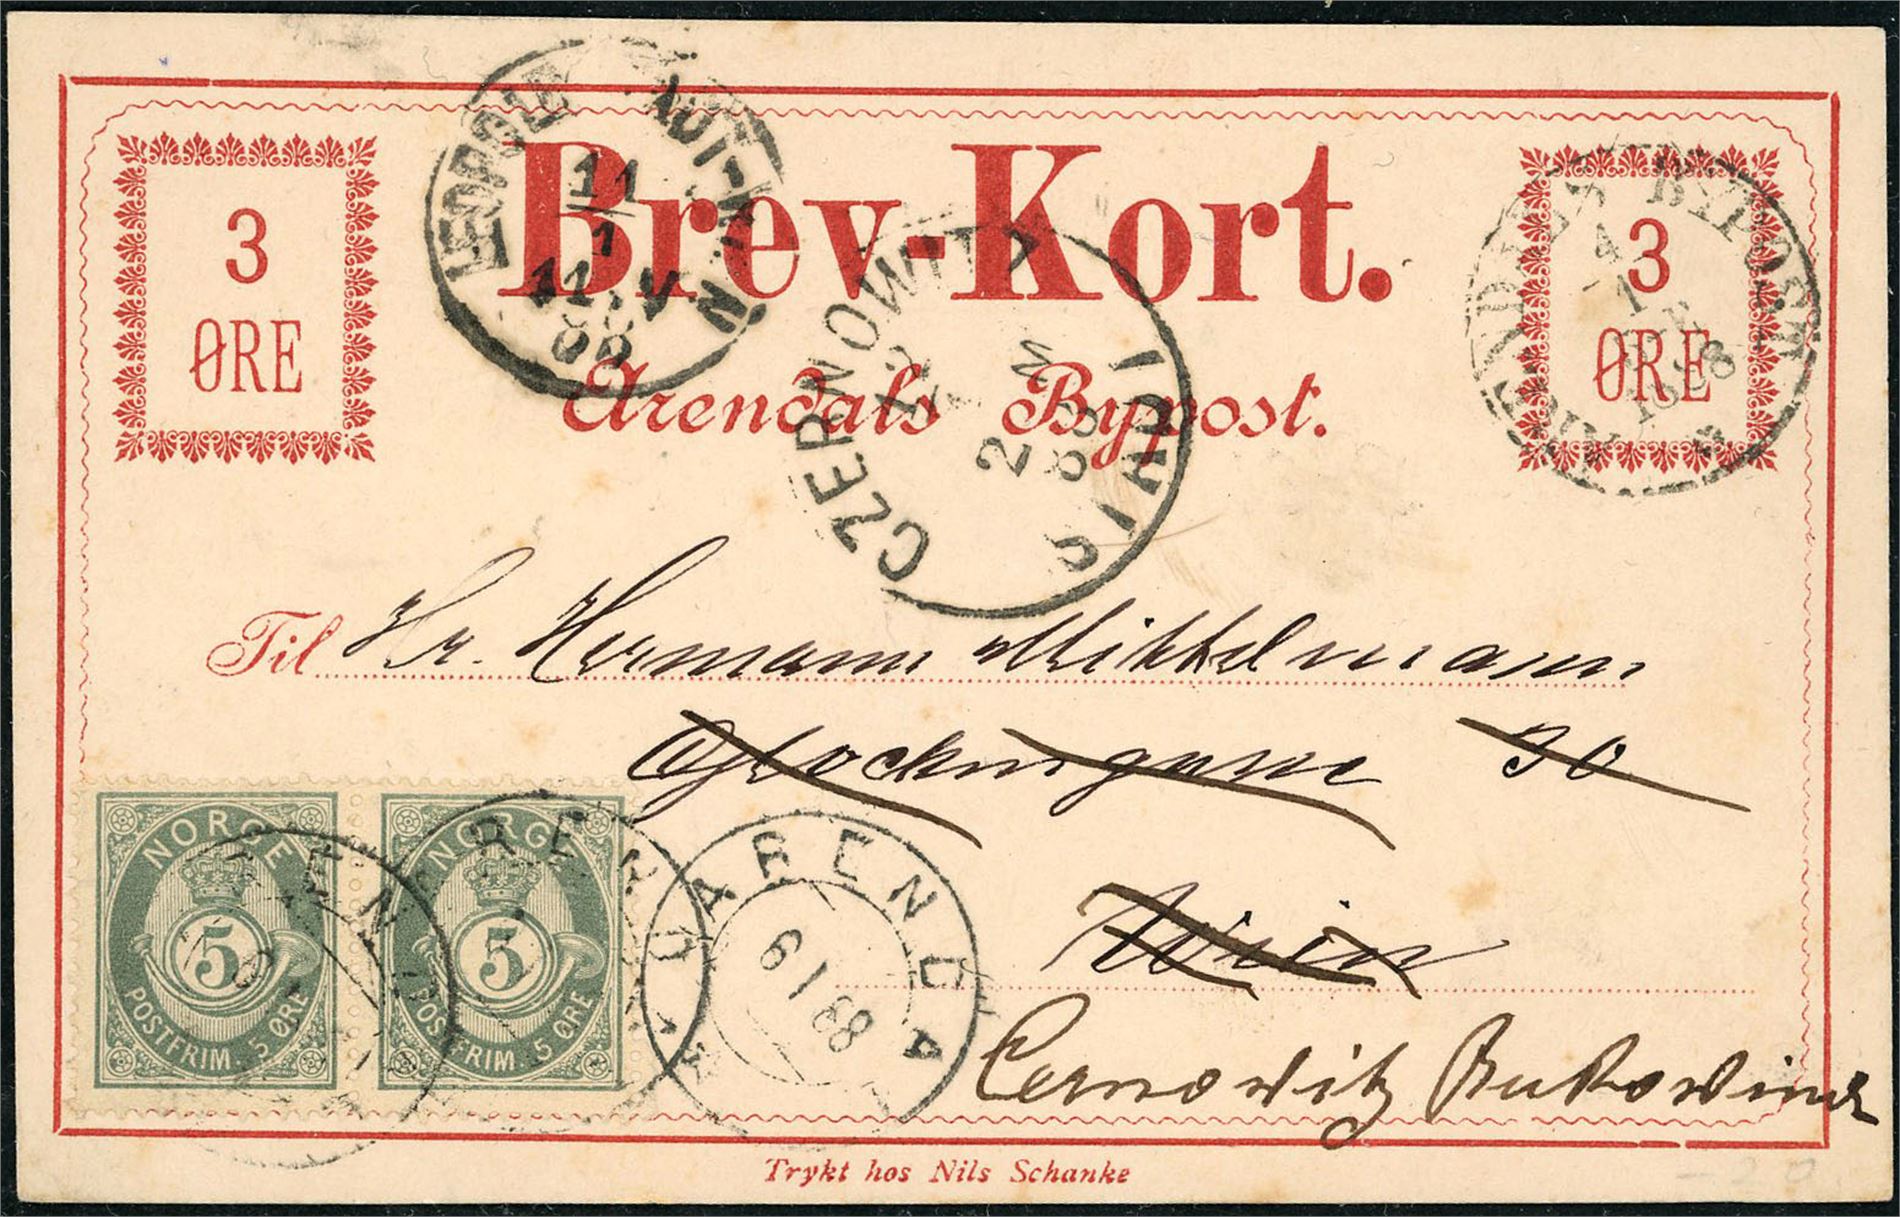 3
ØRE
Brev-Kort.
3
ØRE
Arendals Bypost.
LEOPOLDSTADT-WIEN
11
1
11.V
88
CZERNOWITZ
STADT
88
ARENDALS BYPOST
4
1
1888
Til Hr. Hermann Mittelmann
Glockengasse 30
Wien
Cernowitz Bukowina
NORGE
5
POSTFRIM. 5 ØRE
NORGE
5
POSTFRIM. 5 ØRE
ARENDAL
6 1 88
Trykt hos Nils Schanke